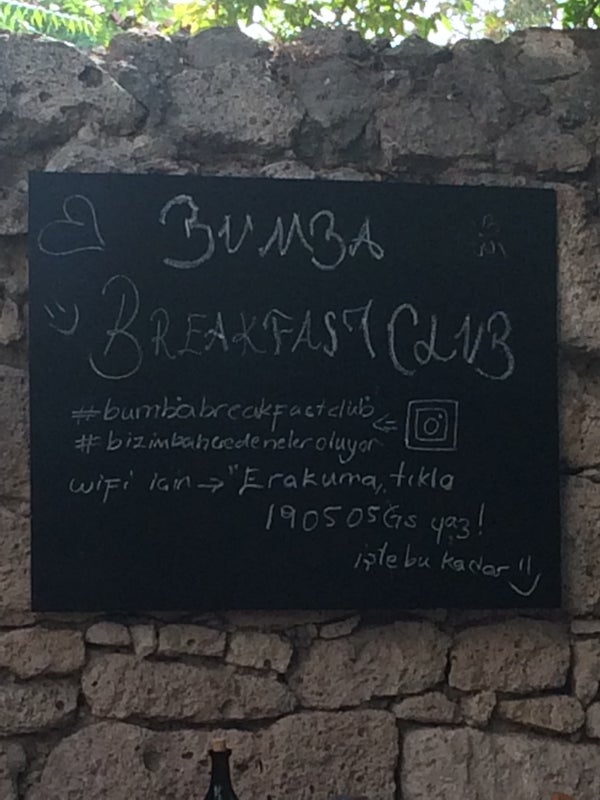 BUMBA
BREAKFAST CLUB
#bumbabreakfastclub
#bizimbahçedeneleroluyor
wifi için → "Erakuma, tıkla
190505Gs yaz!
işte bu kadar !!